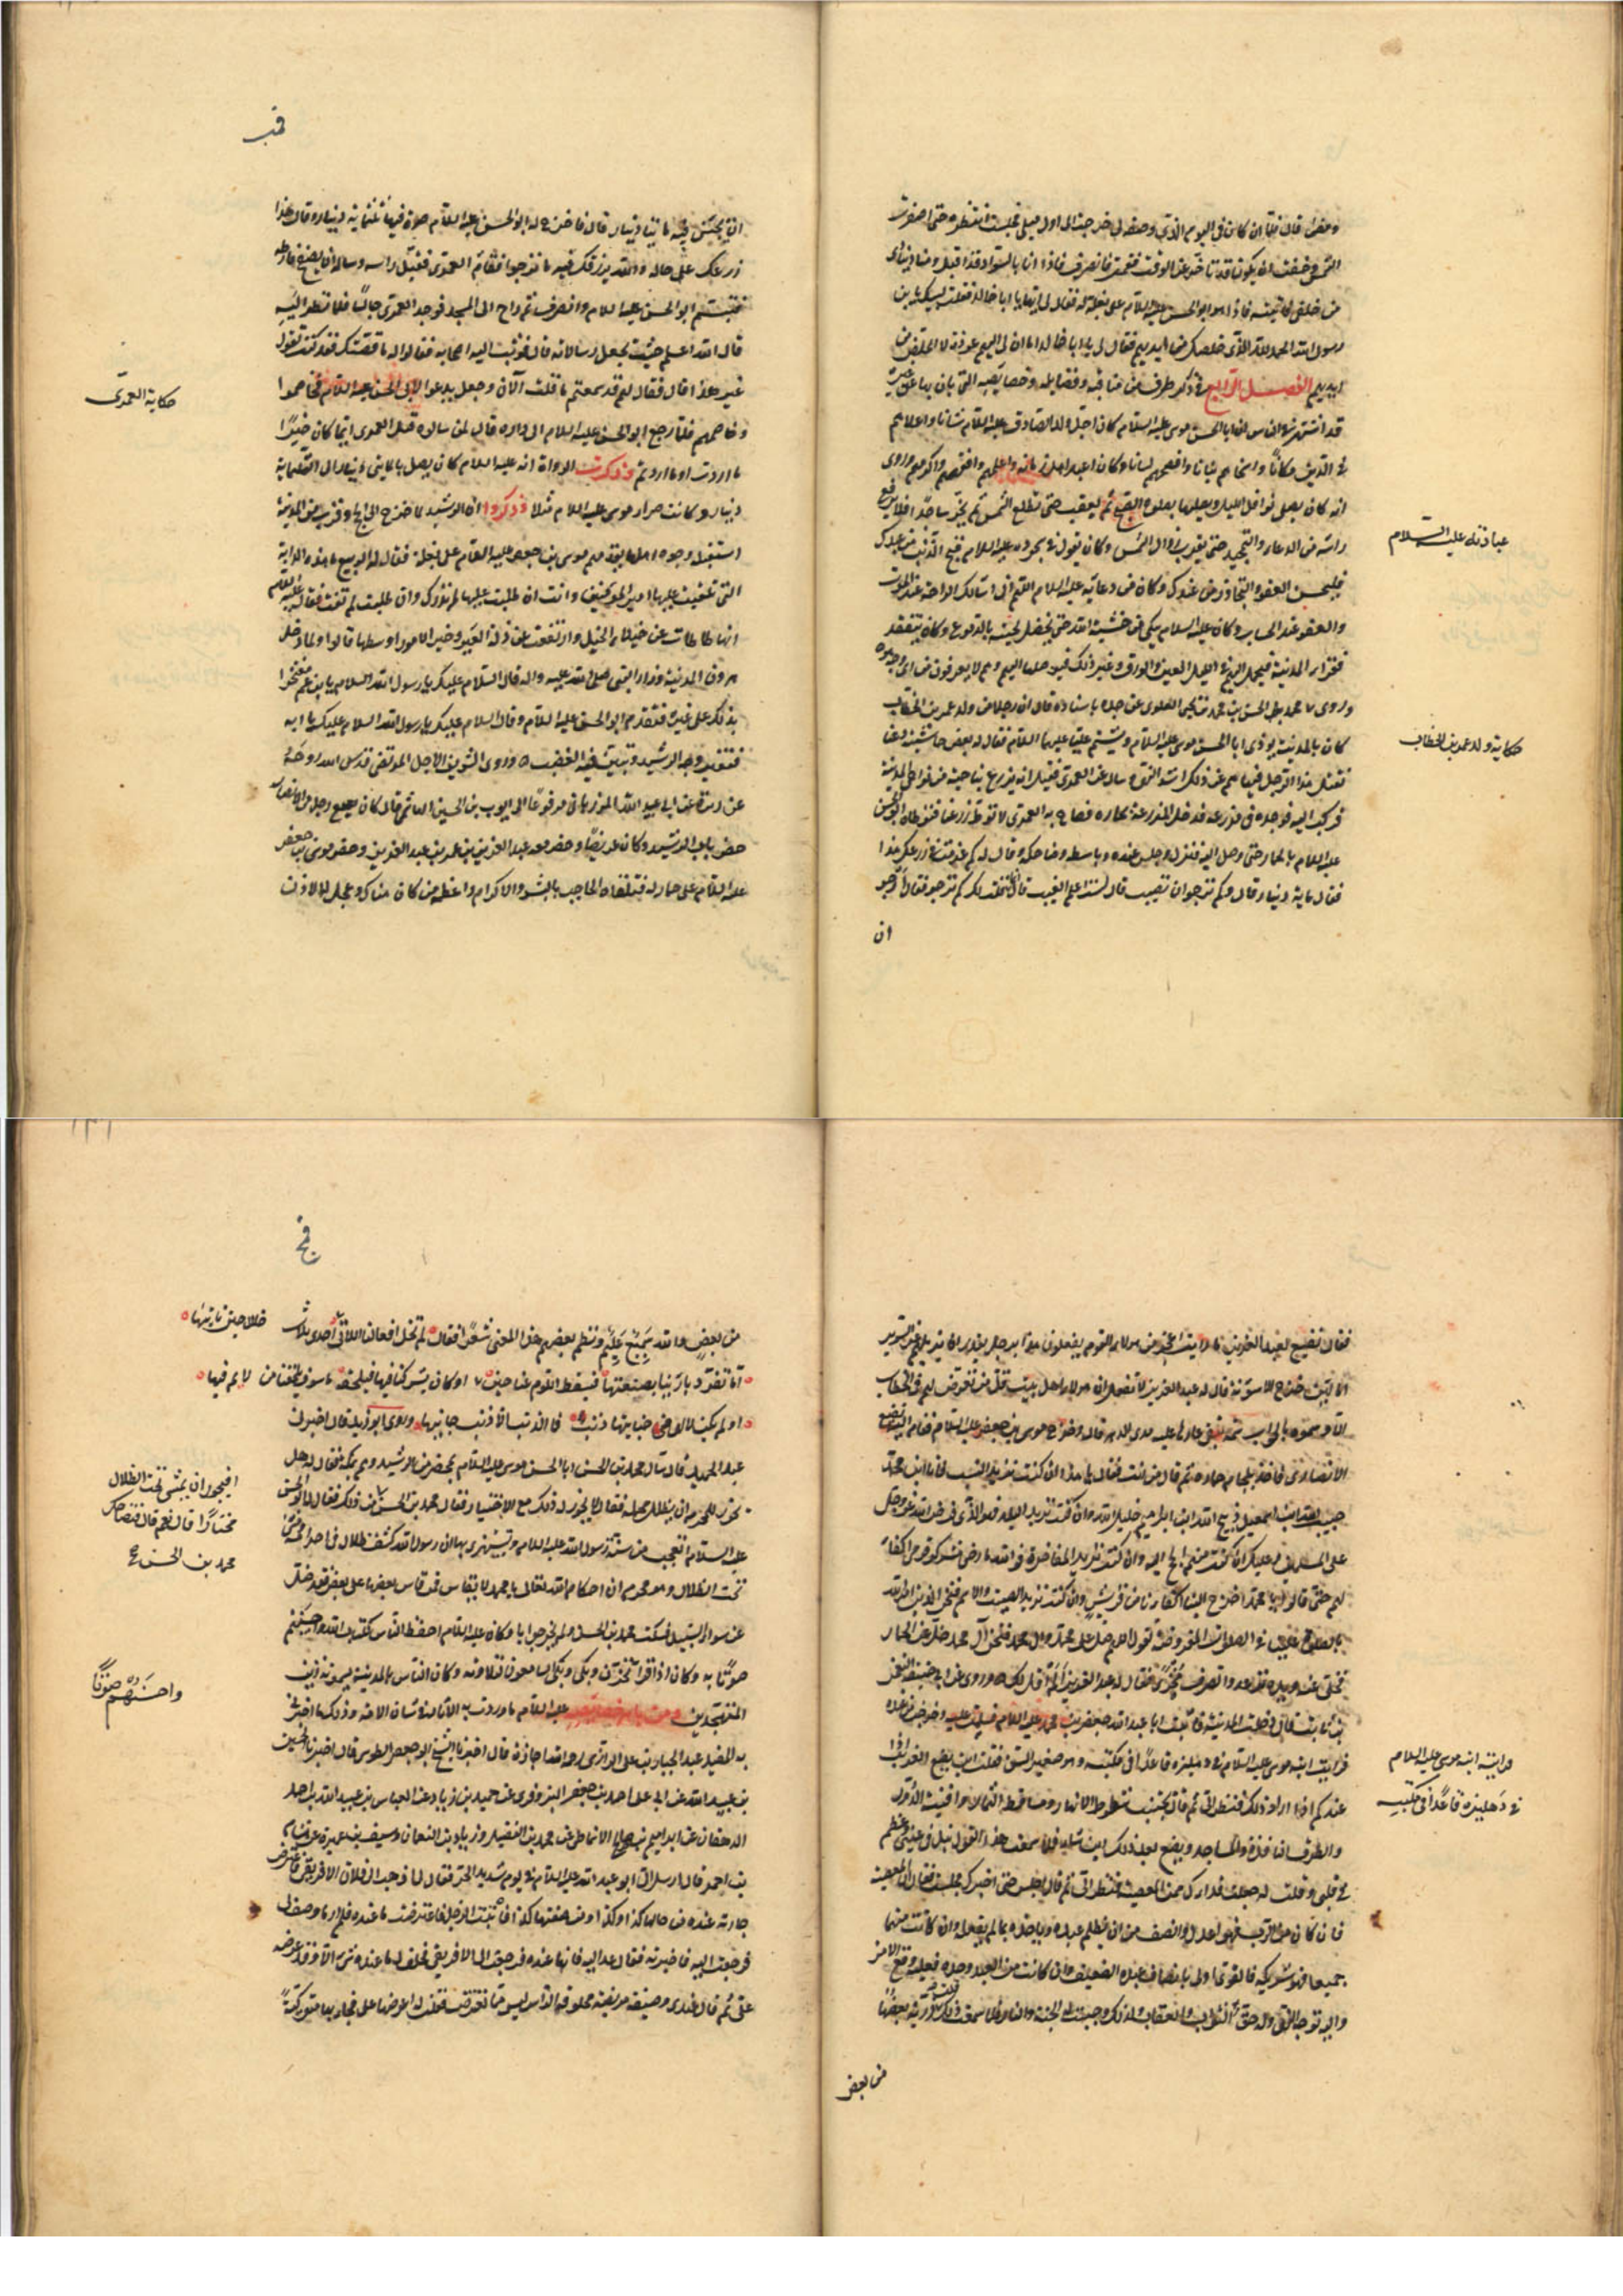 ومضى قال فلما ان كان في اليوم الذي وصفه لي خرجت الى اول ميل فجلست انتظره حتى اصفرت
الشمس وخفت ان يكون قد تاخر عن الوقت فقمت فانصرف فاذا انا بالسواد قد اقبل ومناد ينادي
من خلفي فاتيته فاذا هو ابو الحسن عليه السلام على بغلة له فقال لي ايها يا ابا خالد فقلت لبيك يا بن
رسول الله الحمد لله الذي خلصك من ايديهم فقال لي يا ابا خالد اما ان لي اليهم عودة لا اتخلص من
ايديهم الفصل الرابع في ذكر طرف من مناقبه وفضايله وخصايصه التي بان بها عن غيره
قد اشتهر بين الناس ان ابا الحسن موسى عليه السلام كان اجل ولد الصادق عليه السلام شانا واعلاهم
في الدين مكانا واسخاهم بنانا وافصحهم لسانا وكان اعبد اهل زمانه واعلمهم وافقههم واكرمهم وروى
انه كان يصلى نوافل الليل ويصلها بصلوة الصبح ثم يعقب حتى تطلع الشمس ثم يخر ساجدا فلا يرفع
راسه من الدعاء والتحميد حتى يقرب زوال الشمس وكان يقول في سجوده عليه السلام قبح الذنب من عبدك
فليحسن العفو والتجاوز من عندك وكان من دعائه عليه السلام اللهم اني اسالك الراحة عند الموت
والعفو عند الحساب وكان عليه السلام يبكي من خشية الله حتى يخضل لحيته بالدموع وكان يتفقد
فقراء المدينة فيحمل اليهم في الليل العين والورق وغير ذلك فيوصلها اليهم وهم لا يعرفون من اي وجه هو
وروى محمد بن الحسن بن محمد بن يحيى العلوي عن جده باسناده قال ان رجلا من ولد عمر بن الخطاب
كان بالمدينة يوذي ابا الحسن موسى عليه السلام ويشتم عليا عليهما السلام فقال له بعض حاشيته دعنا
نقتل هذا الرجل فنهاهم عن ذلك اشد النهي وسال عن العمري فقيل انه يزرع بناحية من نواحي المدينة
فركب اليه فوجده في مزرعة فدخل المزرعة بحماره فصاح به العمري لا توطئ زرعنا فتوطاه ابو الحسن
عليه السلام بالحمار حتى وصل اليه فنزل وجلس عنده وباسطه وضاحكه وقال له كم غرمت في زرعك هذا
فقال مائة دينار قال وكم ترجو ان تصيب قال لست اعلم الغيب قال انما قلت لك كم ترجو فقال ارجو
ان
عبادته عليه السلام
حكاية ولد عمر بن الخطاب
قب
ان يجيئني فيه مائتا دينار قال فاخرج له ابو الحسن عليه السلام صرة فيها ثلثمائة دينار وقال هذا
زرعك على حاله والله يرزقك فيه ما ترجو فقام العمري فقبل راسه وساله ان يصفح عن فارطه
فتبسم ابو الحسن عليه السلام وانصرف ثم راح الى المسجد فوجد العمري جالسا فلما نظر اليه
قال الله اعلم حيث يجعل رسالاته قال فوثب اليه اصحابه فقالوا له ما قصتك فقد كنت تقول
غير هذا قال فقال لهم قد سمعتم ما قلت الآن وجعل يدعو لابي الحسن عليه السلام فخاصموا
وخاصمهم فلما رجع ابو الحسن عليه السلام الى داره قال لمن سالوه قتل العمري ايما كان خيرا
ما اردت او ما اردتم وذكرت الرواة انه عليه السلام كان يصل بالمايتي دينار الى الثلثماية
دينار وكانت صرار موسى عليه السلام مثلا وذكروا ان الرشيد لما خرج الى الحج وقرب من المدينة
استقبله وجوه اهلها يقدمهم موسى بن جعفر عليه السلام على بغلة فقال له الربيع ما هذه الدابة
التي تلقيت عليها امير المؤمنين وانت ان طلبت عليها لم تدرك وان طلبت لم تفت فقال عليه السلام
انها تطاطات عن خيلاء الخيل وارتفعت عن ذلة العير وخير الامور اوسطها قالوا ولما دخل
هرون المدينة وزار النبي صلى الله عليه واله قال السلام عليك يا رسول الله السلام يا بن عم مفتخرا
بذلك على غيره فتقدم ابو الحسن عليه السلام وقال السلام عليك يا رسول الله السلام عليك يا ابه
فتغير وجه الرشيد وتبين فيه الغضب وروى الشريف الاجل المرتضى قدس الله روحه
عن ابي عبيد الله المرزباني مرفوعا الى ايوب بن الحسين الهاشمي قال كان نفيع رجل من الانصار
حضر باب الرشيد وكان عريضا وحضر معه عبد العزيز بن عمر بن عبد العزيز وحضر موسى بن جعفر
عليه السلام على حمار له فتلقاه الحاجب بالبشر والاكرام واعظمه من كان هناك وعجل له الاذن
حكاية العمري
فقال نفيع لعبد العزيز ما رايت اعجز من هولاء القوم يفعلون هذا برجل يقدر ان يزيلهم عن السرير
اما لئن خرج لاسوءنه قال له عبد العزيز لا تفعل فان هولاء اهل بيت قل من تعرض لهم في الخطاب
الا وسموه بالجواب سمة يبقى عارها عليه مدى الدهر قال وخرج موسى بن جعفر عليه السلام فقام اليه نفيع
الانصاري فاخذ بلجام حماره ثم قال من انت فقال يا هذا ان كنت تريد النسب فانا ابن محمد
حبيب الله ابن اسمعيل ذبيح الله ابن ابراهيم خليل الله وان كنت تريد البلد فهو الذي فرض الله عز وجل
على المسلمين وعليك ان كنت منهم الحج اليه وان كنت تريد المفاخرة فوالله ما رضي مشركوا قومي اكفاء
لهم حتى قالوا يا محمد اخرج الينا اكفاءنا من قريش وان كنت تريد الصيت والاسم فنحن الذين امر الله
بالصلوة علينا في الصلوات المفروضة تقول اللهم صل على محمد وال محمد فنحن آل محمد خل عن الحمار
فخلى عنه ويده ترعد وانصرف مخزيا فقال له عبد العزيز الم اقل لك وروى عن ابي حنيفة النعمن
بن ثابت قال دخلت المدينة فاتيت ابا عبد الله جعفر بن محمد عليه السلام فسلمت عليه وخرجت من عنده
فرايت ابنه موسى عليه السلام في دهليزه قاعدا في مكتبه وهو صغير السن فقلت اين يضع الغريب اذا
عندكم اذا اراد ذلك فنظر الي ثم قال يجتنب شطوط الانهار ومساقط الثمار وافنية الدور
والطرق النافذة والمساجد ويضع بعد ذلك اين شاء فلما سمعت هذا القول نبل في عيني وعظم
في قلبي وقلت له جعلت فداك ممن المعصية فنظر الي ثم قال اجلس حتى اخبرك فجلست فقال ان المعصية
فان كان من الرب فهو اعدل وانصف من ان يظلم عبده وياخذه بما لم يفعله وان كانت منهما
جميعا فهو شريكه فالقوي اولى بانصاف عبده الضعيف وان كانت من العبد وحده فعليه وقع الامر
واليه توجه النهي وله حق الثواب والعقاب ولذلك وجبت له الجنة والنار فلما سمعت ذلك قلت ذرية بعضها
من بعض
ورايت ابنه موسى عليه السلام
في دهليزه قاعدا في مكتبه
فج
من بعض والله سميع عليم ونظم بعضهم هذا المعنى شعرا فقال لم تخل افعالنا اللاتي احدى ثلاث خلال حين ناتيها
اما تفرد بارينا بصنعتها فيسقط اللوم عنا حين او كان يشركنا فيها فيلحقه ما سوف يلحقنا من لائم فيها
او لم يكن لالهي في جنايتها ذنب فما الذنب الا ذنب جانيها وروى ابو زيد قال اخبرنا
عبد الحميد قال سال محمد بن الحسن ابا الحسن موسى عليه السلام بمحضر من الرشيد وهم بمكة فقال له هل
يجوز للمحرم ان يظلل محمله فقال لا يجوز له ذلك مع الاختيار فقال محمد بن الحسن من ذلك فقال له ابو الحسن
عليه السلام اتعجب من سنة رسول الله عليه السلام وتستهزئ بها ان رسول الله كشف ظلاله في احرامه ومشى
تحت الظلال وهو محرم ان احكام الله تعالى يا محمد لا يقاس فمن قاس بعضها على بعض فقد ضل
عن سواء السبيل فسكت محمد بن الحسن ولم يحر جوابا وكان عليه السلام احفظ الناس كتاب الله واحسنهم
صوتا به وكان اذا قرا تحزن وبكى وبكى السامعون لتلاوته وكان الناس بالمدينة يسمونه زين
المتهجدين ومن باهر خصايصه عليه السلام ما وردت به الاثار في شان الامة وذلك ما اخبرني
به المفيد عبد الجبار بن علي الرازي رحمه الله اجازة قال اخبرنا الشيخ ابو جعفر الطوسي قال اخبرنا الحسين
بن عبيد الله عن ابي علي احمد بن جعفر البزوفري عن حميد بن زياد عن العباس بن عبيد الله بن احمد
الدهقان عن ابراهيم بن صالح الانماطي عن محمد بن الفضيل وزياد بن النعمان وسيف بن عميرة عن هشام
بن احمر قال ارسل الي ابو عبد الله عليه السلام في يوم شديد الحر فقال لي اذهب الى فلان الافريقي فاعترض
جارية عنده من حالها كذا وكذا ومن صفتها كذا فاتيت الرجل فاعترضت ما عنده فلم ار ما وصف لي
فرجعت اليه فاخبرته فقال عد اليه فانها عنده فرجعت الى الافريقي فحلف لي ما عنده شيء الا وقد عرضه
علي ثم قال عندي وصيفة مريضة محلوقة الراس ليس مما تعترض فقلت له اعرضها علي فجاء بها متوركة
افيجوز ان يمشي تحت الظلال
مختارا قال نعم قال فتضاحك
محمد بن الحسن
واحسنهم صوتا